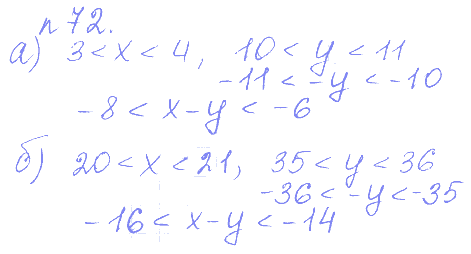 п 72.
а) 3 < x < 4, 10 < y < 11
-11 < -y < -10
-8 < x - y < -6
б) 20 < x < 21, 35 < y < 36
-36 < -y < -35
-16 < x - y < -14